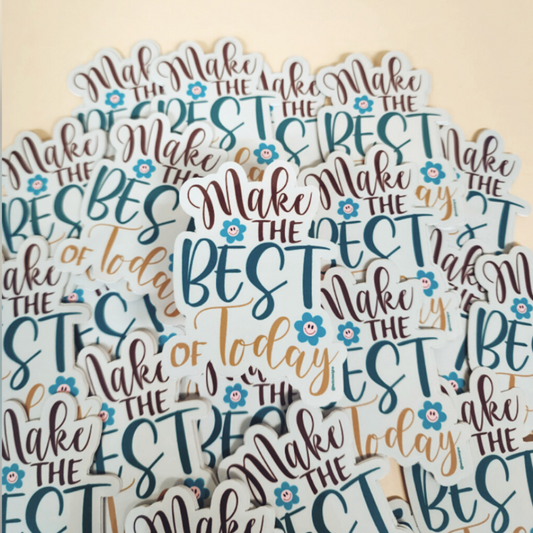 Make
THE
BEST
OF Today